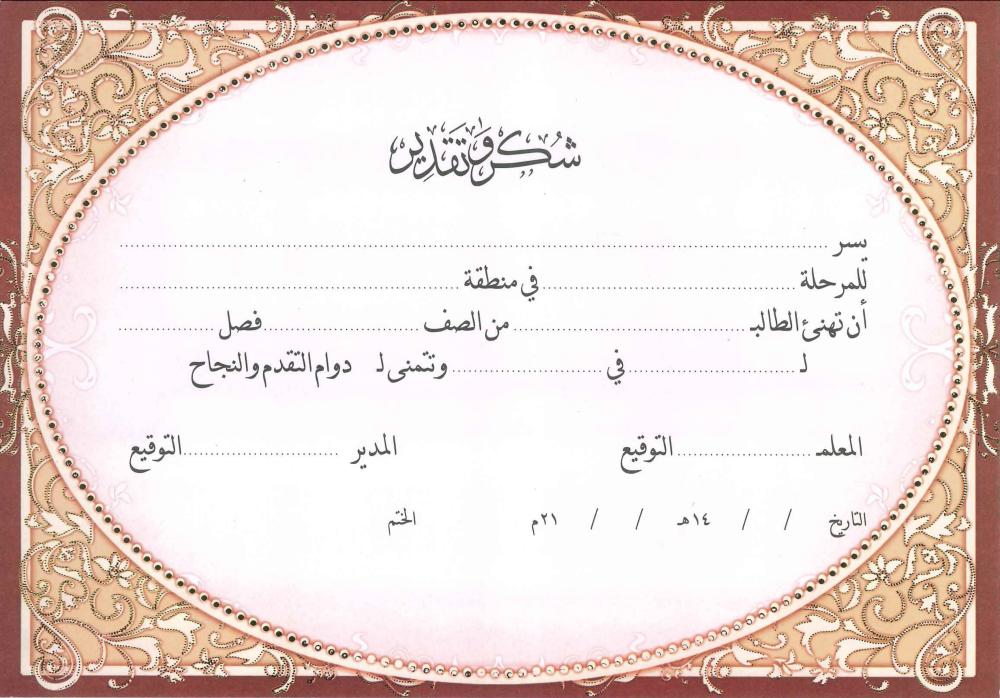 شكر وتقدير
يسر ........................................
للمرحلة .................... في منطقة ....................
أن تهنئ الطالبـ .................... من الصف .................... فصل ....................
لـ .................... في .................... وتتمنى لـ دوام التقدم والنجاح
المعلمـ .................... التوقيع المدير .................... التوقيع
التاريخ / / ١٤هـ / / ٢١م الختم